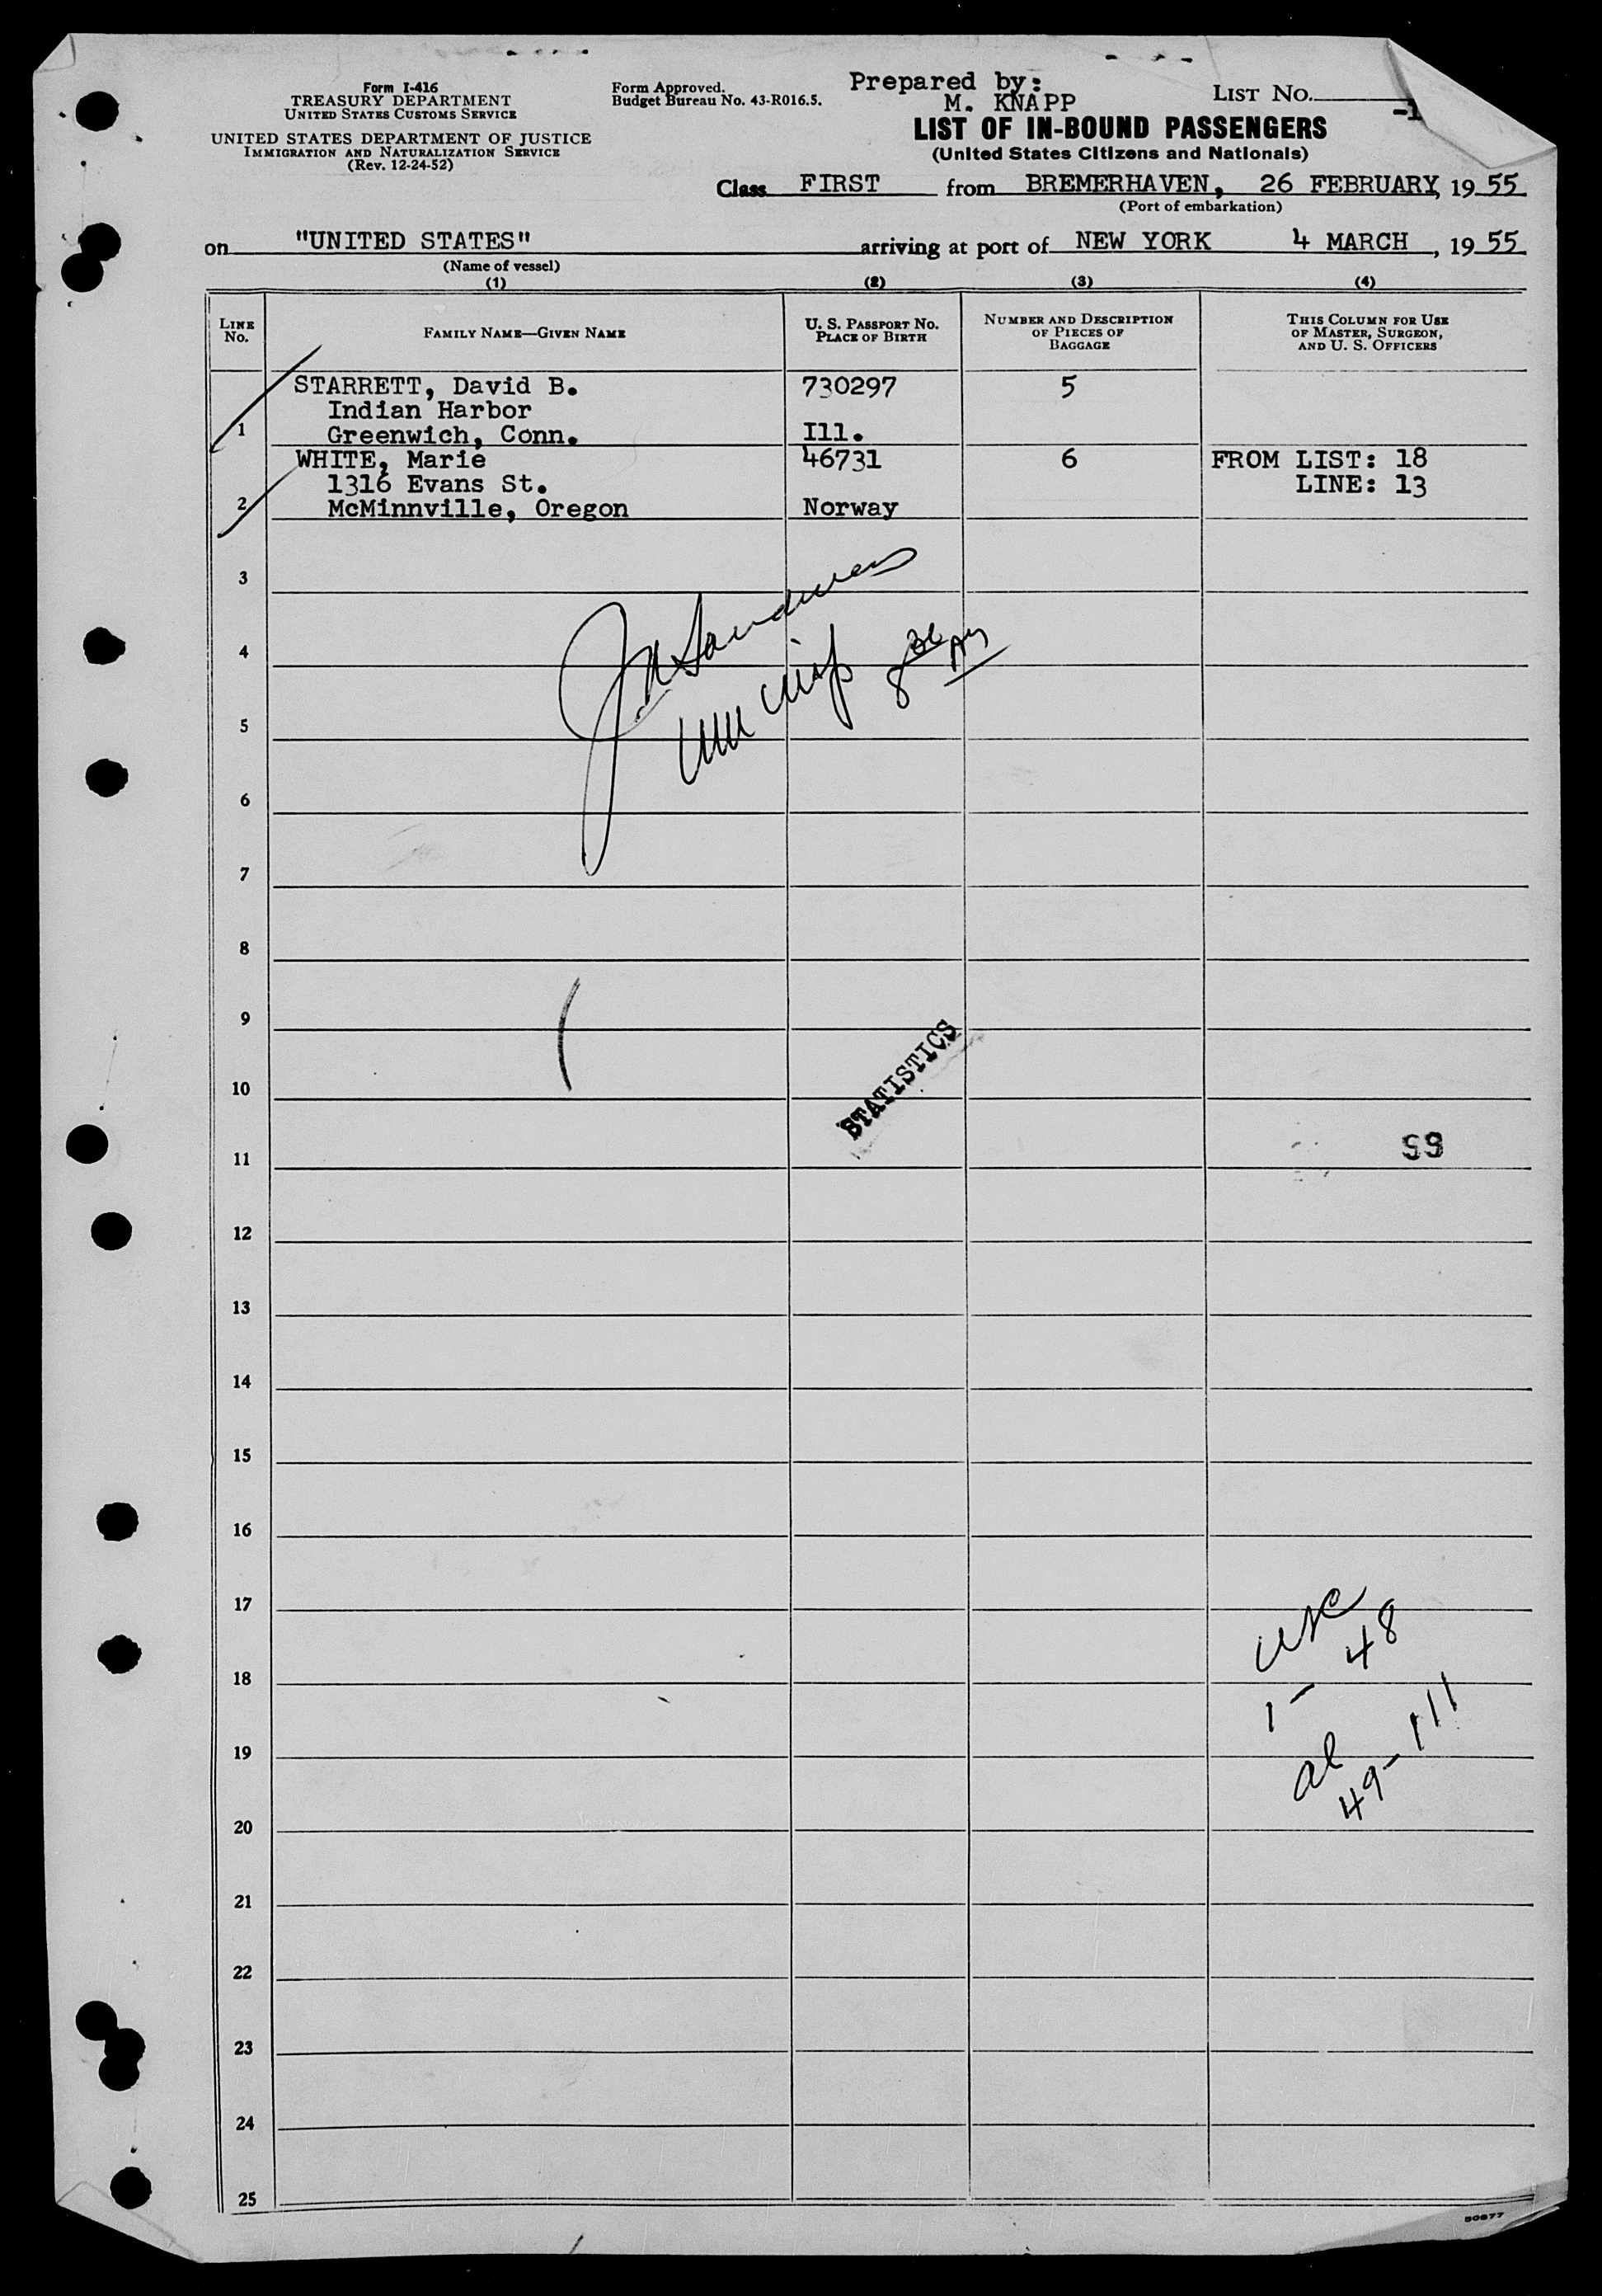 Form I-416
TREASURY DEPARTMENT
UNITED STATES CUSTOMS SERVICE
UNITED STATES DEPARTMENT OF JUSTICE
IMMIGRATION AND NATURALIZATION SERVICE
(Rev. 12-24-52)
Form Approved.
Budget Bureau No. 43-R016.5.
Prepared by:
M. KNAPP
LIST NO. -1
LIST OF IN-BOUND PASSENGERS
(United States Citizens and Nationals)
Class FIRST from BREMERHAVEN, 26 FEBRUARY, 19 55
(Port of embarkation)
on "UNITED STATES" arriving at port of NEW YORK 4 MARCH, 19 55
(Name of vessel)
(1) (2) (3) (4)
LINE No. FAMILY NAME—GIVEN NAME U. S. PASSPORT NO. PLACE OF BIRTH NUMBER AND DESCRIPTION OF PIECES OF BAGGAGE THIS COLUMN FOR USE OF MASTER, SURGEON, AND U. S. OFFICERS
STARRETT, David B. 730297 5
Indian Harbor
1 Greenwich, Conn. Ill.
WHITE, Marie 46731 6 FROM LIST: 18
1316 Evans St. LINE: 13
2 McMinnville, Oregon Norway
3
4
5
6
7
8
9
10
STATISTICS
11
12
13
14
15
16
17
48
18
1 -
19
49-111
20
21
22
23
24
25
50877